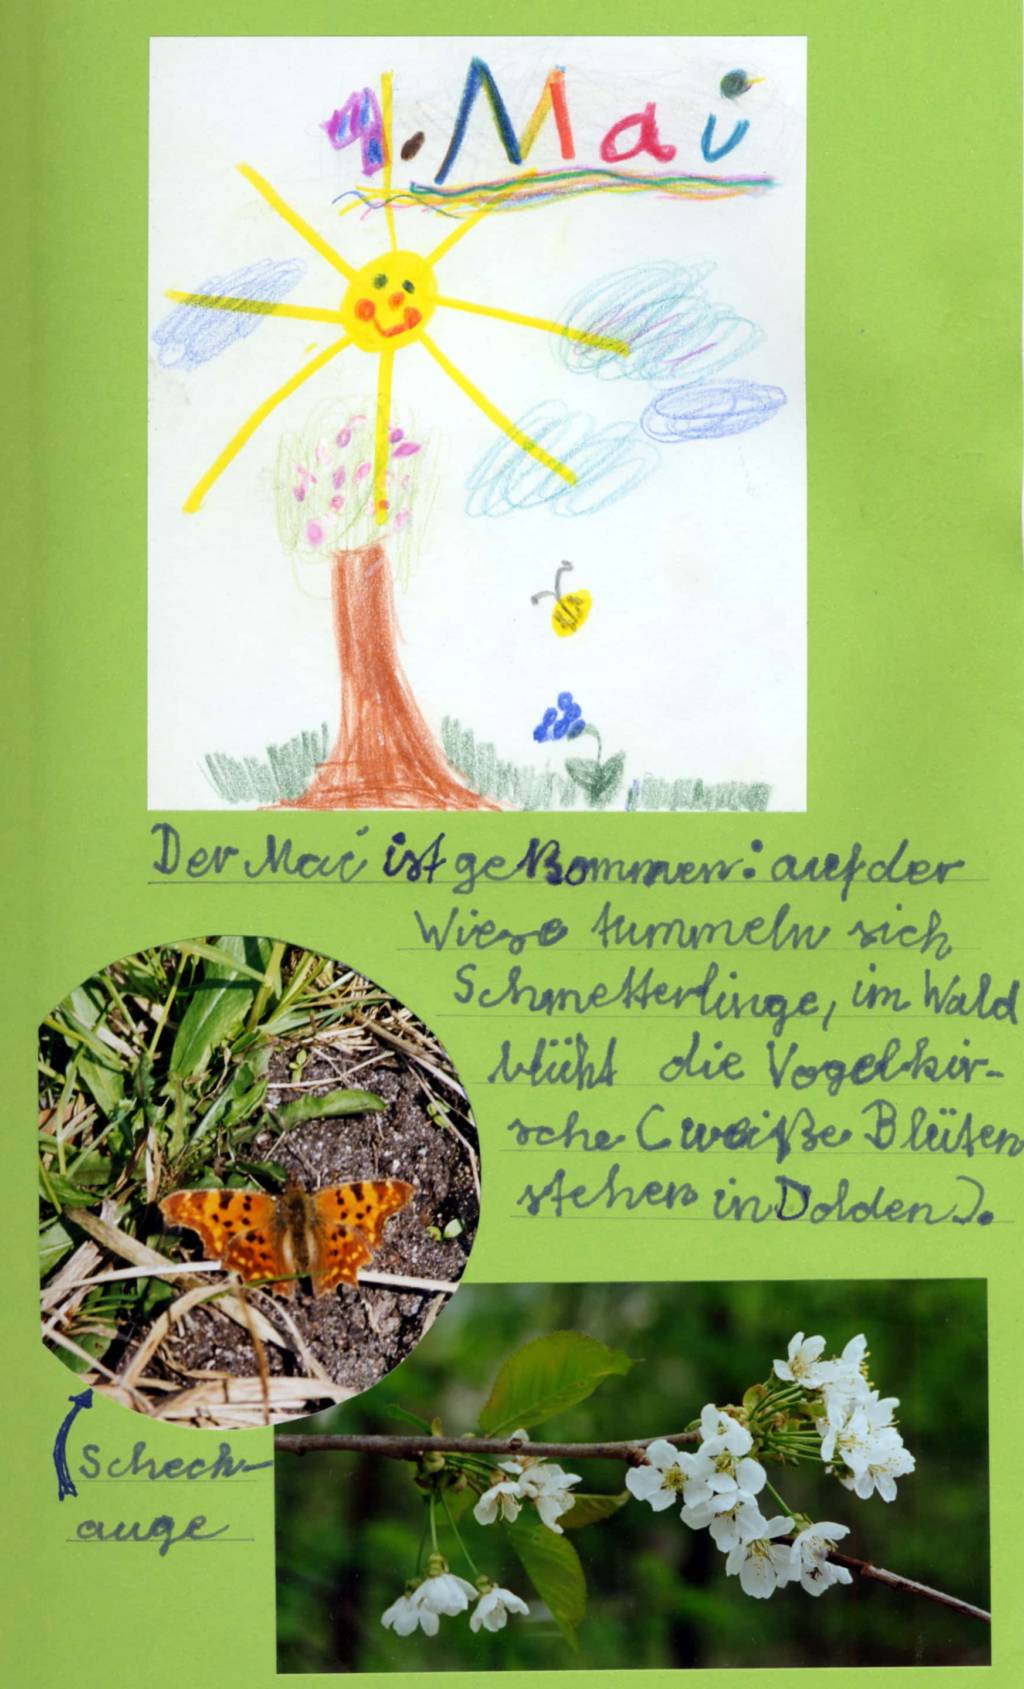 1. Mai
Der Mai ist gekommen: auf der
Wiese tummeln sich
Schmetterlinge, im Wald
blüht die Vogelkir-
sche (weiße Blüten
stehen in Dolden).
Scheck-
auge